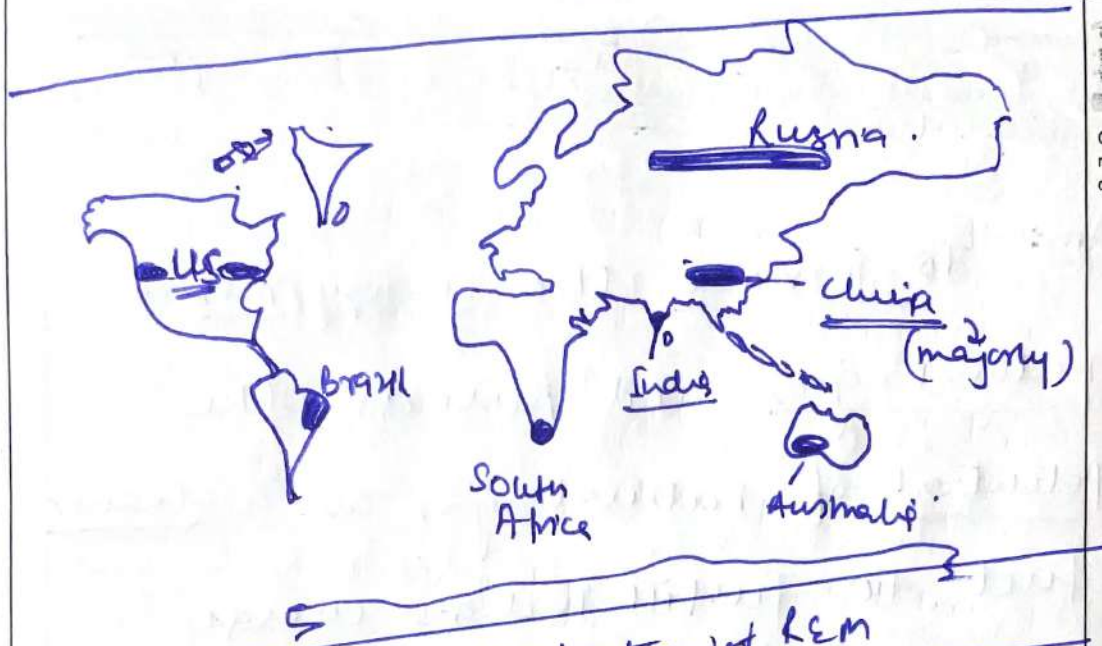 Russia.
US
China
(majority)
Brazil
India
South
Africa
Australia
REM